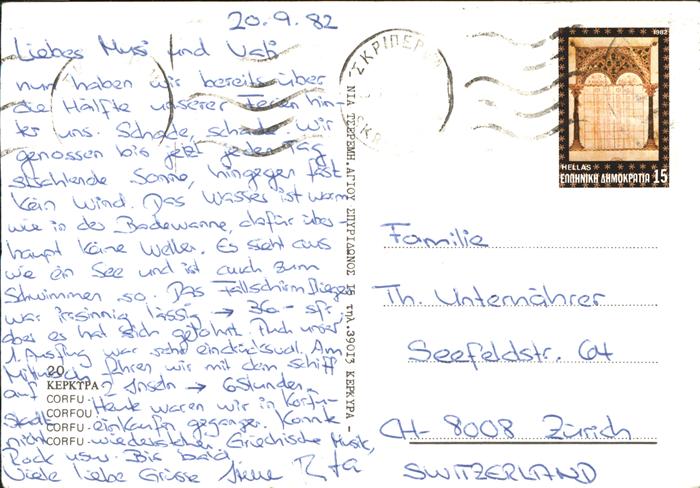 20.9.82
Liebes Musi und Vati
nun haben wir bereits über
die Hälfte unserer Ferien hin-
ter uns. Schade, schade. Wir
genossen bis jetzt jeden Tag
strahlende Sonne, hingegen fast
kein Wind. Das Wasser ist warm
wie in der Badewanne, dafür über-
haupt keine Wellen. Es sieht aus
wie ein See und ist auch zum
Schwimmen so. Das Fallschirmfliegen
war irrsinnig lässig → 36.- sfr,
aber es hat sich gelohnt. Auch unser
1. Ausflug war sehr eindrucksvoll. Am
Mittwoch fahren wir mit dem Schiff
auf 2 Inseln → 6 Stunden.
Heute waren wir in Korfu-
Stadt einkaufen gegangen. Konnte
nicht wiederstehen Griechische Musik,
Rock usw. Bis bald.
Viele liebe Grüsse Rita
20.
ΚΕΡΚΥΡΑ
CORFU
CORFOU
CORFU
CORFU
ΝΙΑ ΤΣΕΡΕΜΗ ΑΓΙΟΥ ΣΠΥΡΙΔΩΝΟΣ τηλ.39013 ΚΕΡΚΥΡΑ -
ΣΚΡΙΠΕΡ
1982
HELLAS
ΕΛΛΗΝΙΚΗ ΔΗΜΟΚΡΑΤΙΑ 15
Familie
Th. Unternährer
Seefeldstr. 64
CH-8008 Zürich
SWITZERLAND